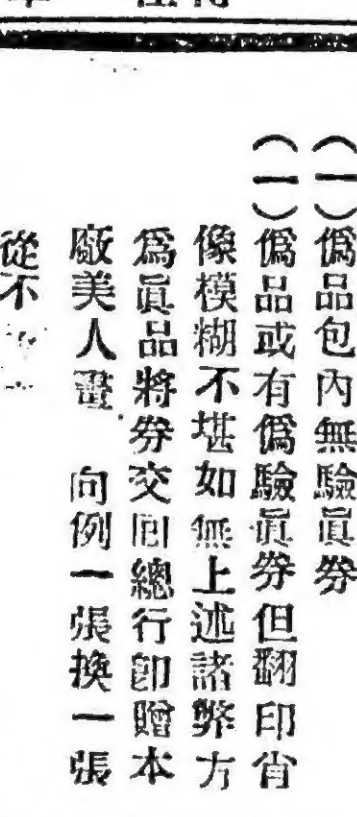 （一）偽品包內無驗眞券
（一）偽品或有偽驗眞券但翻印肖
像模糊不堪如無上述諸弊方
爲眞品將券交回總行卽贈本
廠美人畫　向例一張換一張
從不